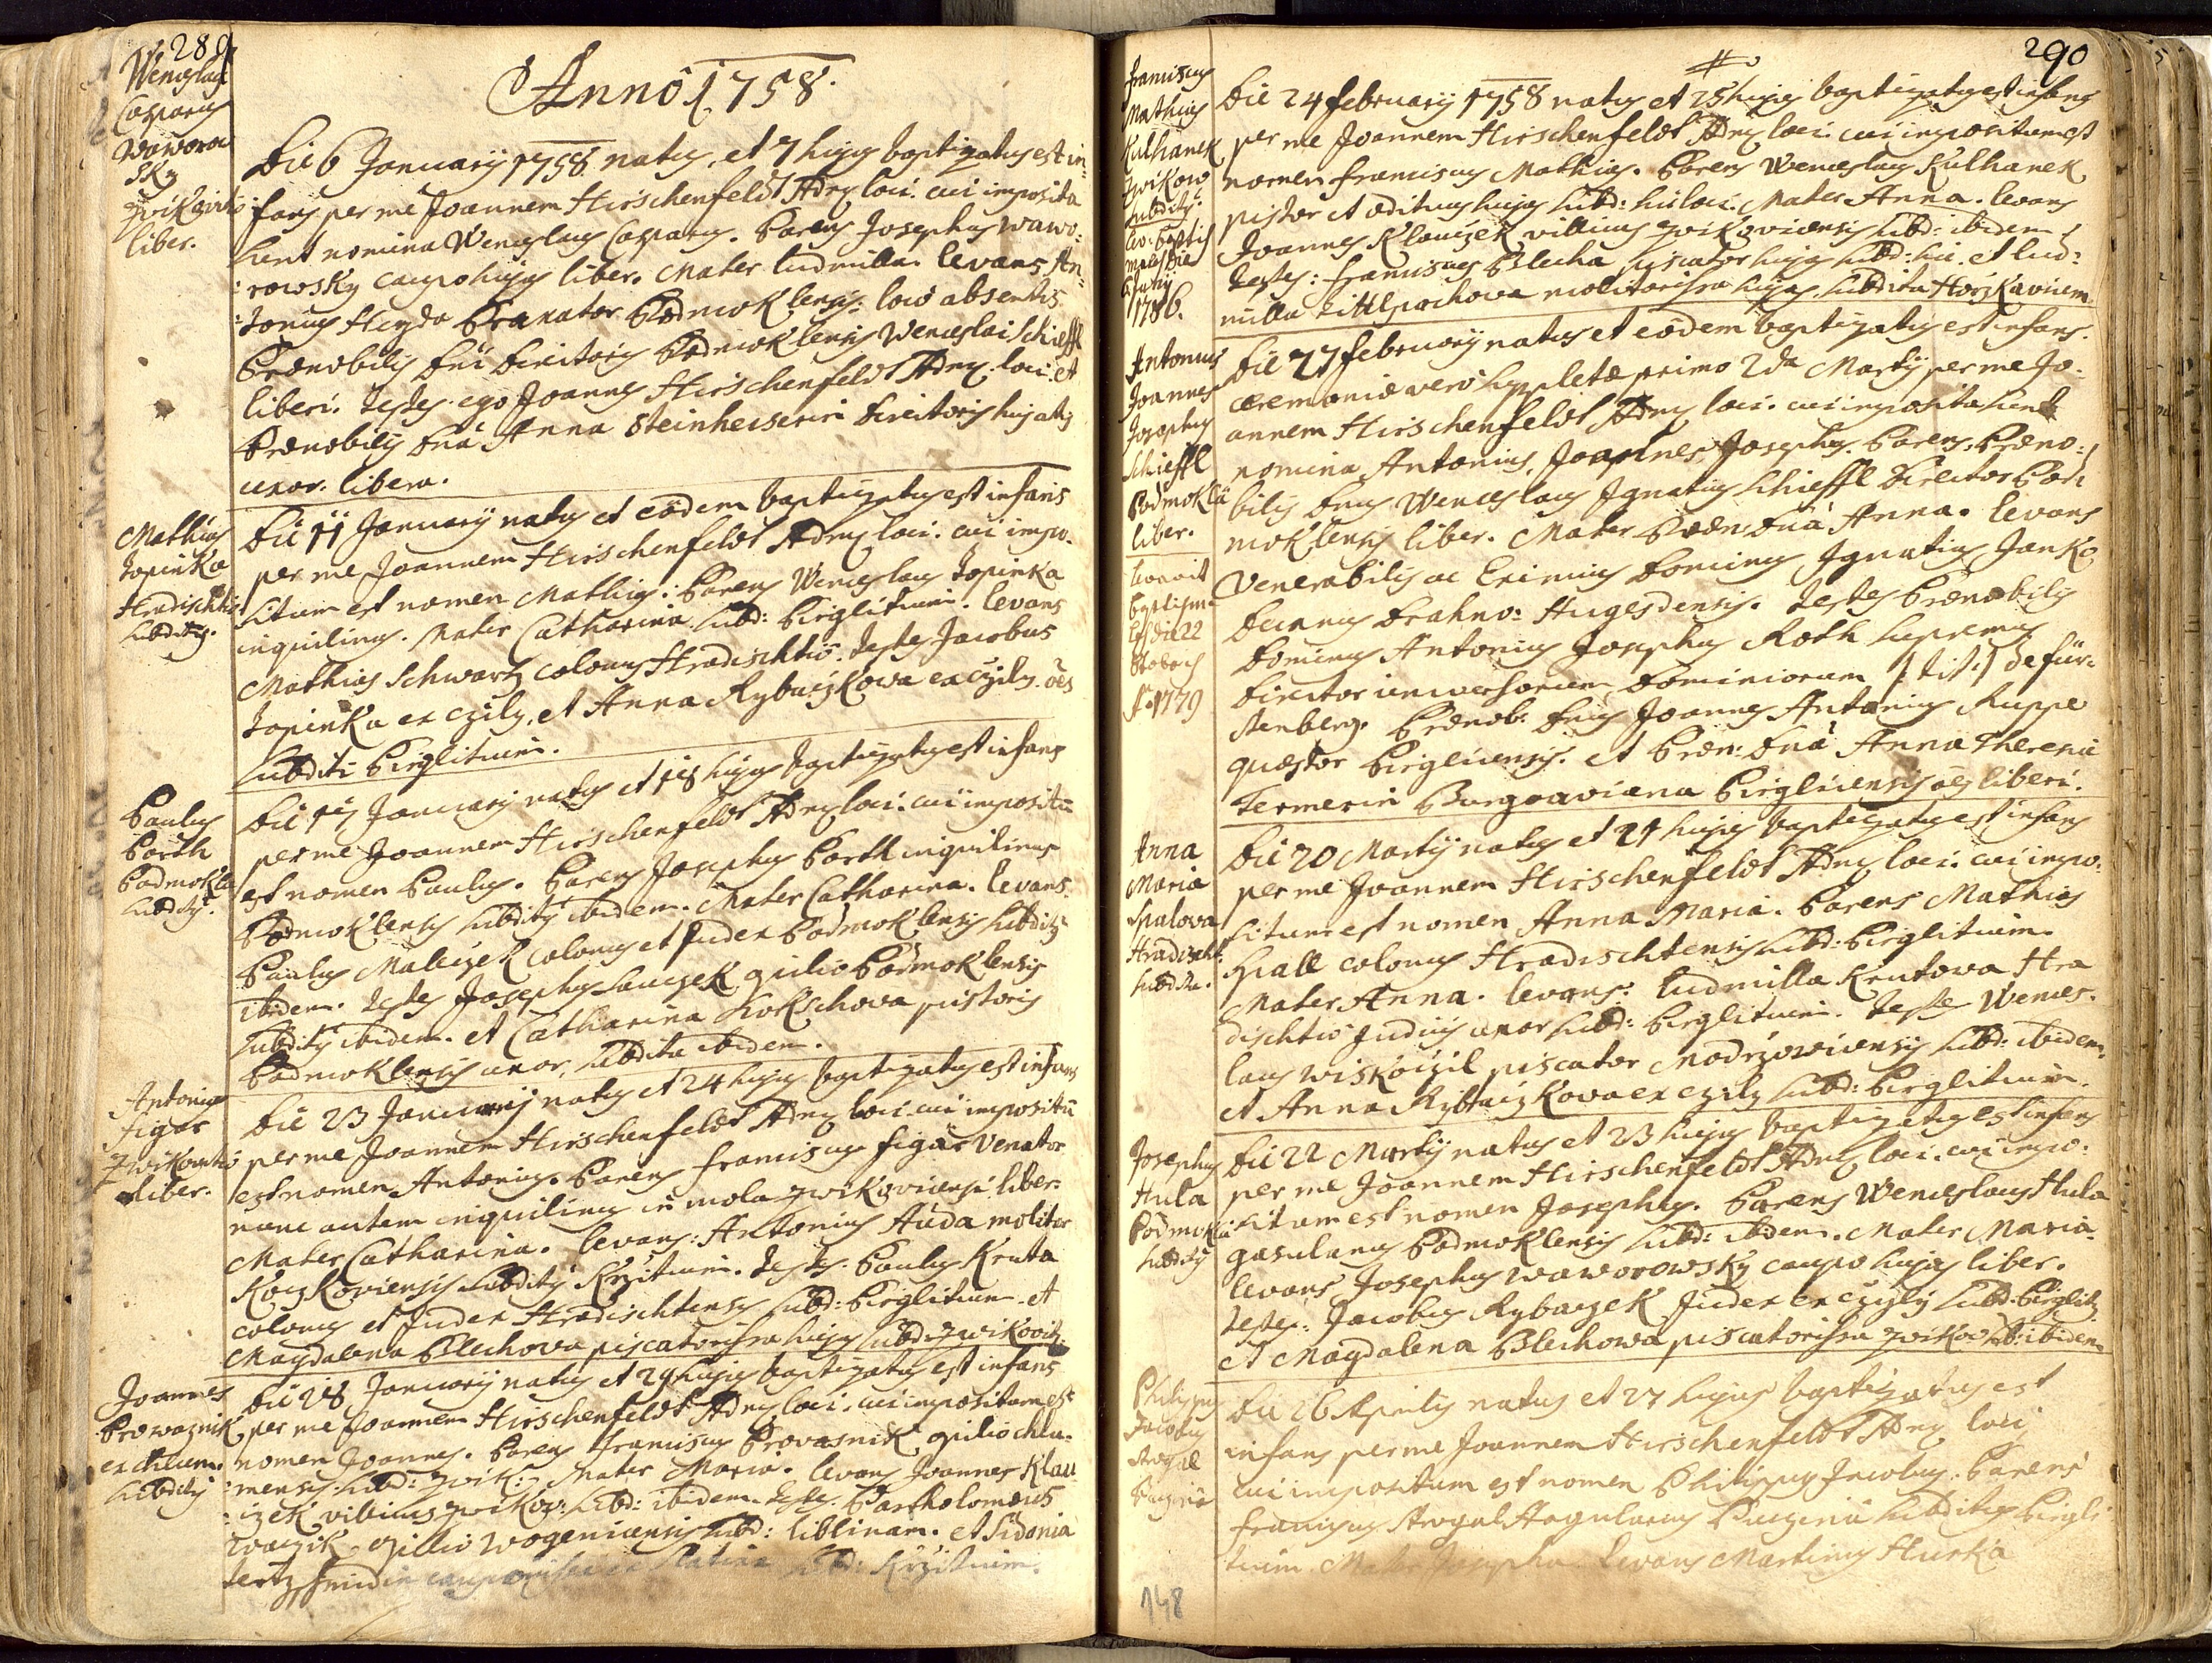 289
Wenceslaus
Casparus
Waworow
sky
Zwikovitio
liber.
Anno 1758.
Die 6 January 1758 natus, et 7 hujus baptizatus est in-
fans per me Joannem Hirschenfeldt Admr. loci. cui imposita
sunt nomina Wenceslaus Casparus. Parens Josephus Wawo:
:rowsky caupo hujas liber. Mater Ludmilla. Levans An:
:tonius Heyda Granator Podmoklensis. loco absentis
Prænobilis Dni Directoris Podmoklensis Wenceslai Schieffl
liberi. Testes ego Joannes Hirschenfeldt Admr. loci. et
Prænobilis Dna Anna Steinheiserin Directoris hujatis
uxor. libera.
Mathias
Topinka
Hradischtio
subditus.
Die 11 January natus et eodem baptizatus est infans
per me Joannem Hirschenfeldt Admr loci. cui impo.
situm est nomen Mathias: Parens Wenceslaus Topinka
inquilinus. Mater Catharina subd: Pirglitium. Levans
Mathias Schwartz colonus Hradischtio. Testes Jacobus
Topinka ex czily, et Anna Rybaczkowa ex czily. oes
subditi Pirglitium.
Paulus
Parth
Podmokla
subditus.
Die 17 January natus et 18 hujus baptizatus est infans
per me Joannem Hirschenfeldt Admr loci. cui impositu
est nomen Paulus. Parens Josephus Parth inquilinus
Podmoklensis subditus ibidem. Mater Catharina. Levans.
Paulus Maleczek colonus et Judex Podmoklensis subditus
ibidem. Testes Josephus Sauczek opilio Podmoklensis
subditus ibidem. et Catharina Kokschova pistoris
Podmoklensis uxor, subdita ibidem.
Antonius
Figar
Zwikovitio
liber.
Die 23 January natus et 24 hujus baptizatus est infans
per me Joannem Hirschenfeldt Admr loci. cui impositu
est nomen Antonius. Parens Franciscus Figar Venator
nunc autem inquilinus in mola Zwikoviensi liber.
Mater Catharina. Levans: Antonius Auda molitor
Koczkoviensis subditus Krzitium. Testes. Paulus Kruta
colonus et Judex Hradischtensis subd: Pirglitium. et
Magdalena Blechova piscatorissa hujas subd: Zwikovitz.
Joannes
Prowaznik
ex chlum.
subditus
Die 28 January natus et 29 hujus baptizatus est infans
per me Joannem Hirschenfeldt Admr loci. cui impositum est
nomen Joannes. Parens Franciscus Provasnik opilio chlu-
:mensis subd: Zwik: Mater Maria. Levans Joannes Klau
:czek villicus Zwikov: subd: ibidem. Testes. Bartholomæus
opilio Wogeniciensis subd: Liblinam. et Sidonia
subd: Krzitium.
290
Franciscus
Mathias
Kulhanek
Zwikow
subditus.
1786.
Die 24 February 1758 natus et 25 hujus baptizatus est infans
per me Joannem Hirschenfeldt Admr loci. cui impositum est
nomen Franciscus Mathias. Parens Wenceslaus Kulhanek
pistor et ædituus hujas subd: hui loci. Mater Anna. Levans
Joannes Klauczek villicus Zwikoviensis subd: ibidem.
Testes: Franciscus Blecha piscator hujas subd: hic. et Lud:
milla Zittlpachova molitorissa hujas. subdita Horzkaviciem.
Antonius
Joannes
Josephus
Schieffl
Podmokla
liber.
22
1779
Die 27 February natus et eodem baptizatus est infans.
ceremoniæ vero suppletæ primo 2da Marty per me Jo-
annem Hirschenfeldt Admr loci. cui imposita sunt
nomina Antonius, Joannes, Josephus. Parens. Præno:
bilis Dnus Wenceslaus Ignatius Schieffl Director Pod:
moklensis liber. Mater Præn: Dna Anna. Levans
Venerabilis ac Eximius Dominus Ignatius Janko
Decanus Drahno: Augezdensis. Testes Prænobilis
Dominus Antonius Josephus Roth Supremus
Director universorum Dominiorum (Tit:) de Für-
stenberg. Prænob: Dnus Joannes Antonius Ruppe
quæstor Pirglicensis. et Præn: Dna Anna Theresia
Termerin Burgraviana Pirglicensis oes liberi.
Anna
Maria
Spalova
Hradischt:
subdita.
Die 20 Marty natus et 21 hujus baptizatus est infans
per me Joannem Hirschenfeldt Admr loci. cui impo:
situm est nomen Anna Maria. Parens Mathias
Spall colonus Hradischtensis subd: Pirglitium.
Mater Anna. Levans: Ludmilla Krutova Hra
dischtio Judicis uxor subd: Pirglitium. Testes Wences.
laus Wiskoczil piscator Modrzowiensis subd: ibidem.
et Anna Rybaczkova ex czily subd: Pirglitium.
Josephus
Hula
Podmokla
subditus
Die 22 Marty natus et 23 hujus baptizatus est infans
per me Joannem Hirschenfeldt Admr loci. cui impo:
situm est nomen Josephus. Parens Wenceslaus Hula
gasulanus Podmoklensis subd: ibidem. Mater Maria.
Levans Josephus Waworowsky caupo hujas liber.
Testes: Jacobus Rybaczek Judex ex czily subd: Pirglitz.
et Magdalena Blechowa piscatorissa Zwikow subd: ibidem
Philippus
Jacobus
Die 26 Aprilis natus et 27 hujus baptizatus est
infans per me Joannem Hirschenfeldt Admr loci
cui impositum est nomen Philippus Jacobus. Parens
Franciscus subditus Pirgli
tium. Mater Josepha. Levans Martinus Hurka
148